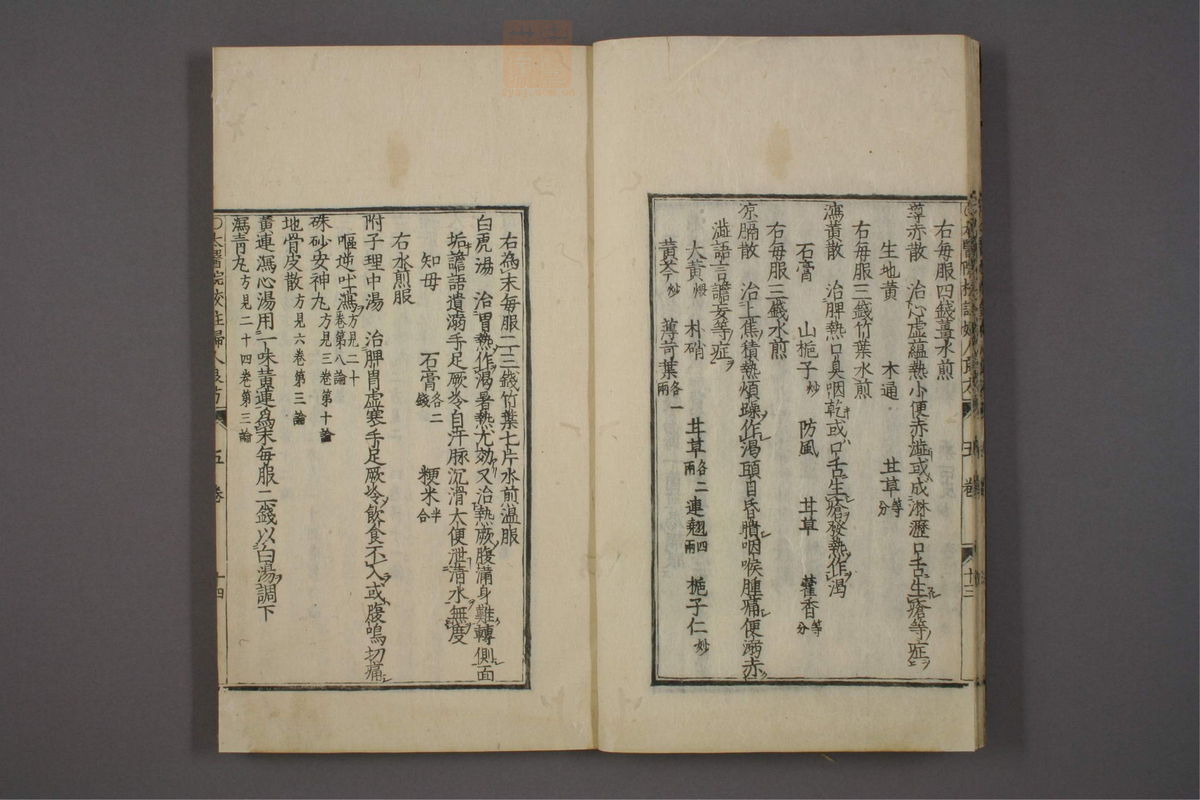 右每服四錢薑水煎
導赤散 治心虛蘊熱小便赤澁或成淋瀝口舌生瘡等症
生地黃 木通 甘草等分
右每服三錢竹葉水煎
瀉黃散 治脾熱口臭咽乾或口舌生瘡發熱作渴
石膏 山梔子炒 防風 甘草 藿香等分
右每服三錢水煎
凉膈散 治上焦積熱煩躁作渴頭目昏膭咽喉腫痛便溺赤
澁語言譫妄等症
大黃煨 朴硝 甘草各二兩 連翹四兩 梔子仁炒
黃芩炒 薄荷葉各一兩
五卷
十三
右為末每服二三錢竹葉七片水煎温服
白虎湯 治胃熱作渴暑熱尤効又治熱厥腹滿身難轉側面
垢譫語遺溺手足厥冷自汗脉沉滑大便泄清水無度
知母 石膏各二錢 粳米半合
右水煎服
附子理中湯 治脾胃虛寒手足厥冷飲食不入或腹鳴切痛
嘔逆吐瀉方見二十卷第八論
硃砂安神丸方見三卷第十論
地骨皮散方見六卷第三論
黃連瀉心湯用一味黃連為末每服二錢以白湯調下
瀉青丸方見二十四卷第三論
○太醫院校註婦人良方
五卷
十四